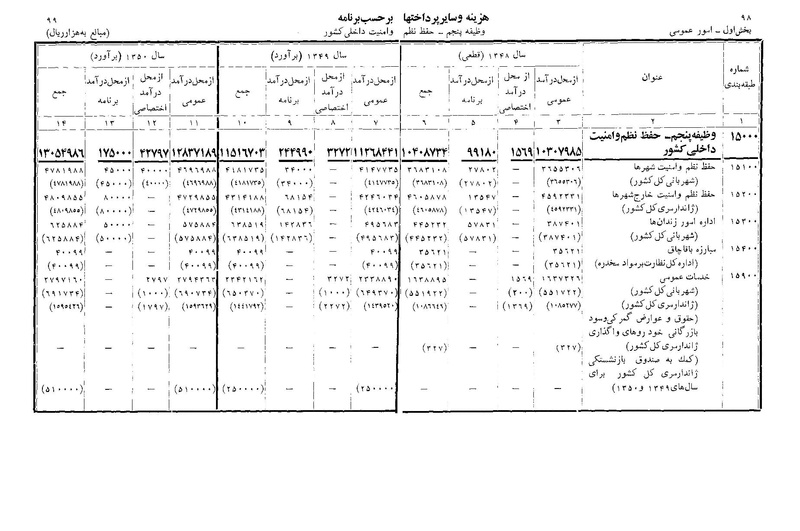 ۹۸
هزینه و سایر پرداختها بر حسب برنامه
۹۹
بخش اول ــ امور عمومی
وظیفه پنجم ــ حفظ نظم و امنیت داخلی کشور
(مبالغ به هزار ریال)
شماره طبقه‌بندی
عنوان
سال ۱۳۴۸ (قطعی)
سال ۱۳۴۹ (برآورد)
سال ۱۳۵۰ (برآورد)
از محل درآمد عمومی
از محل درآمد اختصاصی
از محل درآمد برنامه
جمع
از محل درآمد عمومی
از محل درآمد اختصاصی
از محل درآمد برنامه
جمع
از محل درآمد عمومی
از محل درآمد اختصاصی
از محل درآمد برنامه
جمع
۱ ۲ ۳ ۴ ۵ ۶ ۷ ۸ ۹ ۱۰ ۱۱ ۱۲ ۱۳ ۱۴
۱۵۰۰۰ وظیفه پنجم ــ حفظ نظم و امنیت
داخلی کشور ۱۰۳۰۷۹۸۵ ۱۵۶۹ ۹۹۱۸۰ ۱۰۴۰۸۷۳۴ ۱۱۲۶۸۴۴۱ ۳۲۷۲ ۲۴۴۹۹۰ ۱۱۵۱۶۷۰۳ ۱۲۸۳۷۱۸۹ ۴۲۷۹۷ ۱۷۵۰۰۰ ۱۳۰۵۴۹۸۶
۱۵۱۰۰ حفظ نظم و امنیت شهرها ۳۶۵۵۳۰۶ — ۲۷۸۰۲ ۳۶۸۳۱۰۸ ۴۱۴۷۷۳۵ — ۳۴۰۰۰ ۴۱۸۱۷۳۵ ۴۶۹۶۹۸۸ ۴۰۰۰۰ ۴۵۰۰۰ ۴۷۸۱۹۸۸
(شهربانی کل کشور) (۳۶۵۵۳۰۶) — (۲۷۸۰۲) (۳۶۸۳۱۰۸) (۴۱۴۷۷۳۵) — (۳۴۰۰۰) (۴۱۸۱۷۳۵) (۴۶۹۶۹۸۸) (۴۰۰۰۰) (۴۵۰۰۰) (۴۷۸۱۹۸۸)
۱۵۲۰۰ حفظ نظم و امنیت خارج شهرها ۴۵۹۲۳۳۱ — ۱۳۵۴۷ ۴۶۰۵۸۷۸ ۴۲۴۶۰۳۴ — ۶۸۱۵۴ ۴۳۱۴۱۸۸ ۴۷۲۹۸۵۵ — ۸۰۰۰۰ ۴۸۰۹۸۵۵
(ژاندارمری کل کشور) (۴۵۹۲۳۳۱) — (۱۳۵۴۷) (۴۶۰۵۸۷۸) (۴۲۴۶۰۳۴) — (۶۸۱۵۴) (۴۳۱۴۱۸۸) (۴۷۲۹۸۵۵) — (۸۰۰۰۰) (۴۸۰۹۸۵۵)
۱۵۳۰۰ اداره امور زندان‌ها ۳۸۷۴۰۱ — ۵۷۸۳۱ ۴۴۵۲۳۲ ۴۹۵۶۸۳ — ۱۴۲۸۳۶ ۶۳۸۵۱۹ ۵۷۵۸۸۴ — ۵۰۰۰۰ ۶۲۵۸۸۴
(شهربانی کل کشور) (۳۸۷۴۰۱) — (۵۷۸۳۱) (۴۴۵۲۳۲) (۴۹۵۶۸۳) — (۱۴۲۸۳۶) (۶۳۸۵۱۹) (۵۷۵۸۸۴) — (۵۰۰۰۰) (۶۲۵۸۸۴)
۱۵۴۰۰ مبارزه با قاچاق ۳۵۶۲۱ — — ۳۵۶۲۱ ۴۰۰۹۹ — — ۴۰۰۹۹ ۴۰۰۹۹ — — ۴۰۰۹۹
(اداره کل نظارت بر مواد مخدره) (۳۵۶۲۱) — — (۳۵۶۲۱) (۴۰۰۹۹) — — (۴۰۰۹۹) (۴۰۰۹۹) — — (۴۰۰۹۹)
۱۵۹۰۰ خدمات عمومی ۱۶۳۷۳۲۶ ۱۵۶۹ — ۱۶۳۸۸۹۵ ۲۳۳۸۸۹۰ ۳۲۷۲ — ۲۳۴۲۱۶۲ ۲۷۹۴۳۶۳ ۲۷۹۷ — ۲۷۹۷۱۶۰
(شهربانی کل کشور) (۵۵۱۷۲۲) (۲۰۰) — (۵۵۱۹۲۲) (۶۴۹۳۷۰) (۱۰۰۰) — (۶۵۰۳۷۰) (۶۹۰۷۳۴) (۱۰۰۰) — (۶۹۱۷۳۴)
(ژاندارمری کل کشور) (۱۰۸۵۲۷۷) (۱۳۶۹) — (۱۰۸۶۶۴۹) (۱۴۳۹۵۲۰) (۲۲۷۲) — (۱۴۴۱۷۹۲) (۱۵۹۳۶۲۹) (۱۷۹۷) — (۱۵۹۵۴۲۶)
(حقوق و عوارض گمرکی و سود
بازرگانی خودروهای واگذاری
ژاندارمری کل کشور) (۳۲۷) — — (۳۲۷) — — — — — — — —
(کمک به صندوق بازنشستگی
ژاندارمری کل کشور برای
سال‌های ۱۳۴۹ و ۱۳۵۰) — — — — (۲۵۰۰۰۰) — — (۲۵۰۰۰۰) (۵۱۰۰۰۰) — — (۵۱۰۰۰۰)